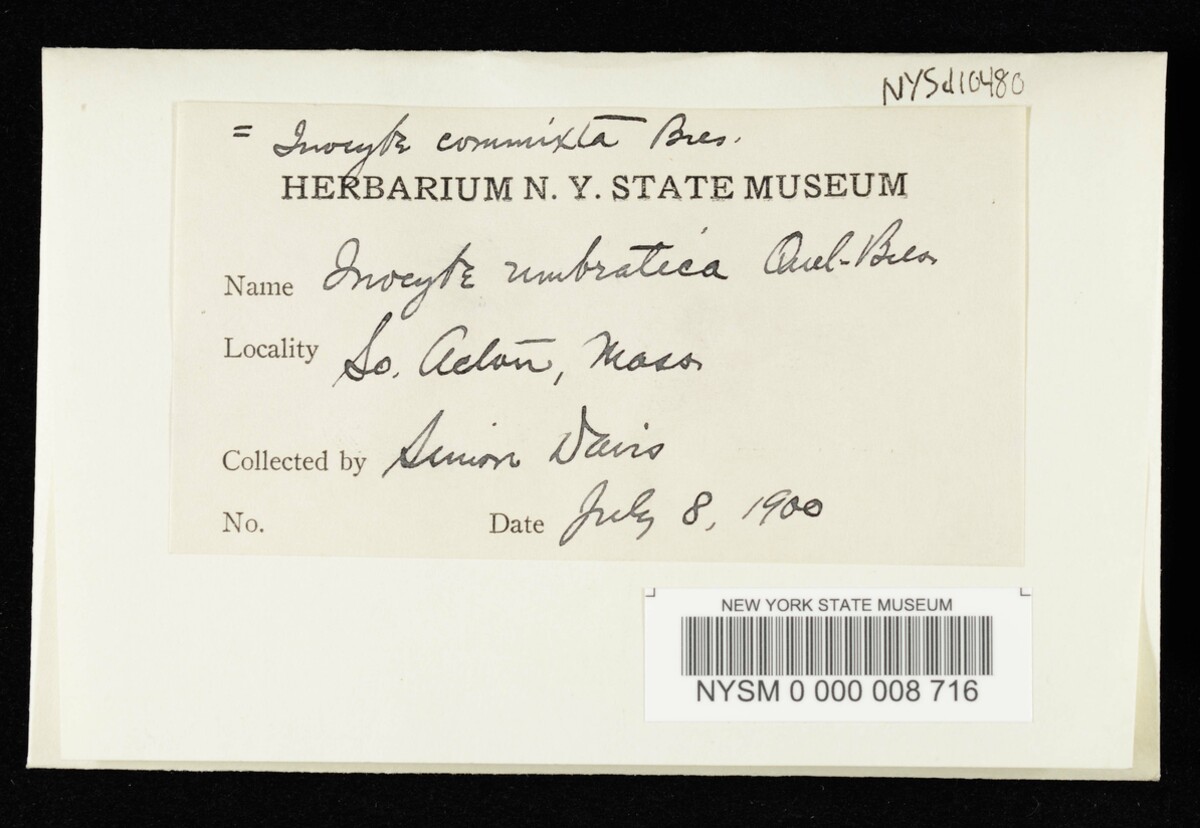 NYSd10480
= Inocybe commixta Bres.
HERBARIUM N. Y. STATE MUSEUM
Name Inocybe umbratica Quel-Bres.
Locality So. Acton, Mass.
Collected by Simon Davis
No. Date July 8, 1900
NEW YORK STATE MUSEUM
NYSM 0 000 008 716